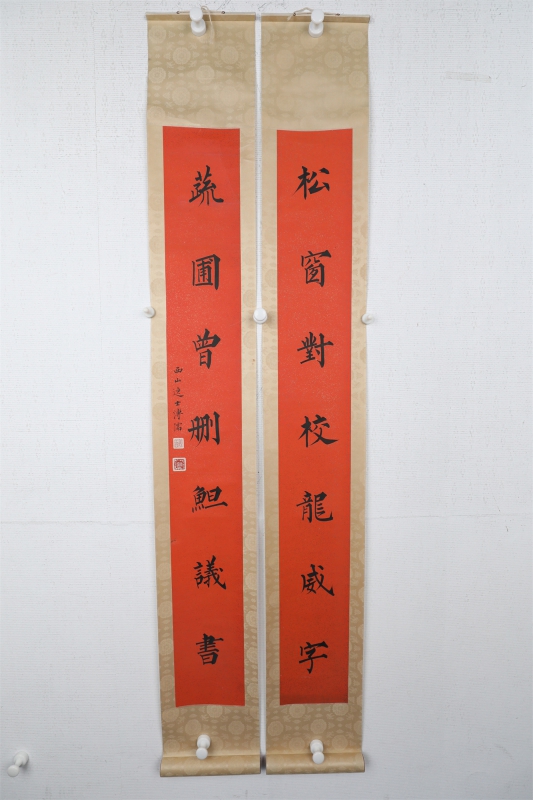 松窗對校龍威字
蔬圃曾刪䱇議書
西山逸士溥儒